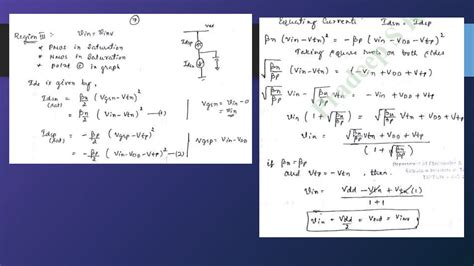 Region III : Vin = Vinv
Vdd
• PMOS in Saturation
• NMOS in Saturation
• point C in graph
Idsp
Ids is given by,
Idsn (sat) = βn/2 (Vgsn - Vtn)²
Vgsn = Vin - 0
= Vin
= βn/2 (Vin - Vtn)² - (1)
Idsp (sat) = - βp/2 (Vgsp - Vtp)²
Vgsp = Vin - VDD
= - βp/2 (Vin - VDD - Vtp)² - (2)
Equating Currents : Idsn = Idsp
βn (Vin - Vtn)² = - βp (Vin - VDD - Vtp)²
Taking square root on both sides
√(βn/βp) (Vin - Vtn) = - (Vin - VDD - Vtp)
√(βn/βp) Vin - √(βn/βp) Vtn = - Vin + VDD + Vtp
Vin (1 + √(βn/βp)) = √(βn/βp) Vtn + VDD + Vtp
Vin = (√(βn/βp) Vtn + VDD + Vtp) / (1 + √(βn/βp))
if βn = βp
and Vtp = - Vtn , then.
Vin = (Vdd - Vtn + Vtn (1)) / (1 + 1)
Vin = Vdd/2 = Vout = Vinv